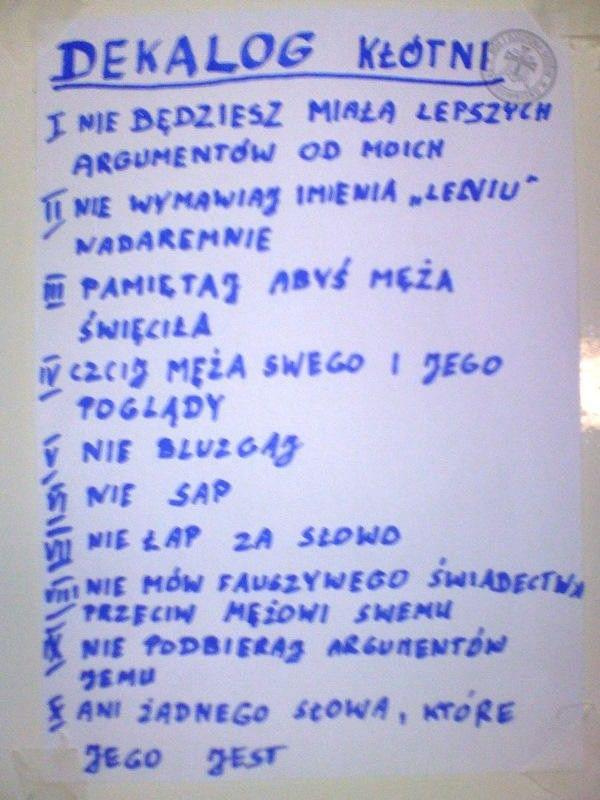 DEKALOG KŁÓTNI
I NIE BĘDZIESZ MIAŁA LEPSZYCH
ARGUMENTÓW OD MOICH
II NIE WYMAWIAJ IMIENIA „LENIU"
NADAREMNIE
III PAMIĘTAJ ABYŚ MĘŻA
ŚWIĘCIŁA
IV CZCIJ MĘŻA SWEGO I JEGO
POGLĄDY
V NIE BLUZGAJ
VI NIE SAP
VII NIE ŁAP ZA SŁOWO
VIII NIE MÓW FAŁSZYWEGO ŚWIADECTWA
PRZECIW MĘŻOWI SWEMU
IX NIE PODBIERAJ ARGUMENTÓW
JEMU
X ANI ŻADNEGO SŁOWA, KTÓRE
JEGO JEST